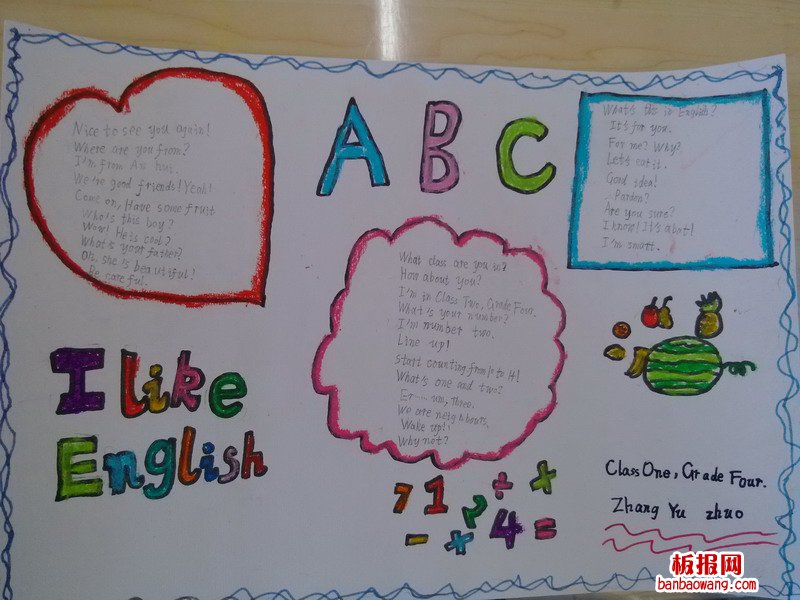 Nice to see you again!
Where are you from?
I'm from An hui.
We're good friends! Yeah!
Come on, Have some fruit
Who's this boy?
Wow! He is cool?
What's your father?
Oh, she is beautiful!
Be careful.
A B C
What's this in English?
It's for you.
For me? Why?
Let's eat it.
Good idea!
Pardon?
Are you sure?
I know! It's a boat!
I'm smart.
What class are you in?
How about you?
I'm in Class Two, Grade Four.
What's your number?
I'm number two.
Line up!
Start counting from 1 to
What's one and two?
Er... um, three.
We are neighbours.
Wake up!
Why not?
I like
English
7 1 2 ÷ +
- × 4 =
Class One, Grade Four.
Zhang Yu zhuo
板报网
banbaowang.com